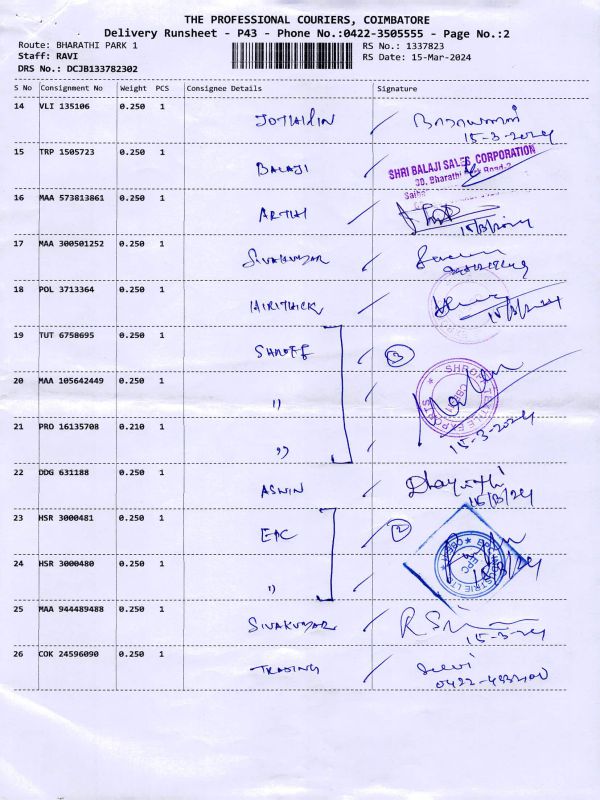 THE PROFESSIONAL COURIERS, COIMBATORE
Delivery Runsheet - P43 - Phone No.:0422-3505555 - Page No.:2
Route: BHARATHI PARK 1 RS No.: 1337823
Staff: RAVI RS Date: 15-Mar-2024
DRS No.: DCJB133782302
S No Consignment No Weight PCS Consignee Details Signature
14 VLI 135106 0.250 1
15-3-2024
15 TRP 1505723 0.250 1 BALAJI
SHRI BALAJI SALES CORPORATION
Bharathi Road-2
16 MAA 573813861 0.250 1 ARTHI
15/3/2024
17 MAA 300501252 0.250 1 SIVAKUMAR
18 POL 3713364 0.250 1 HIRITHICK
15/3/24
19 TUT 6758695 0.250 1 SHROFF 3
20 MAA 105642449 0.250 1 "
SHROFF TEXTILE EXPORTS
21 PRO 16135708 0.210 1 "
15-3-2024
22 DDG 631188 0.250 1 ASWIN
15/3/24
23 HSR 3000481 0.250 1 EPC 2
24 HSR 3000480 0.250 1 "
EPC
25 MAA 944489488 0.250 1 SIVAKUMAR
15-3-24
26 COK 24596090 0.250 1 TRADING Selvi